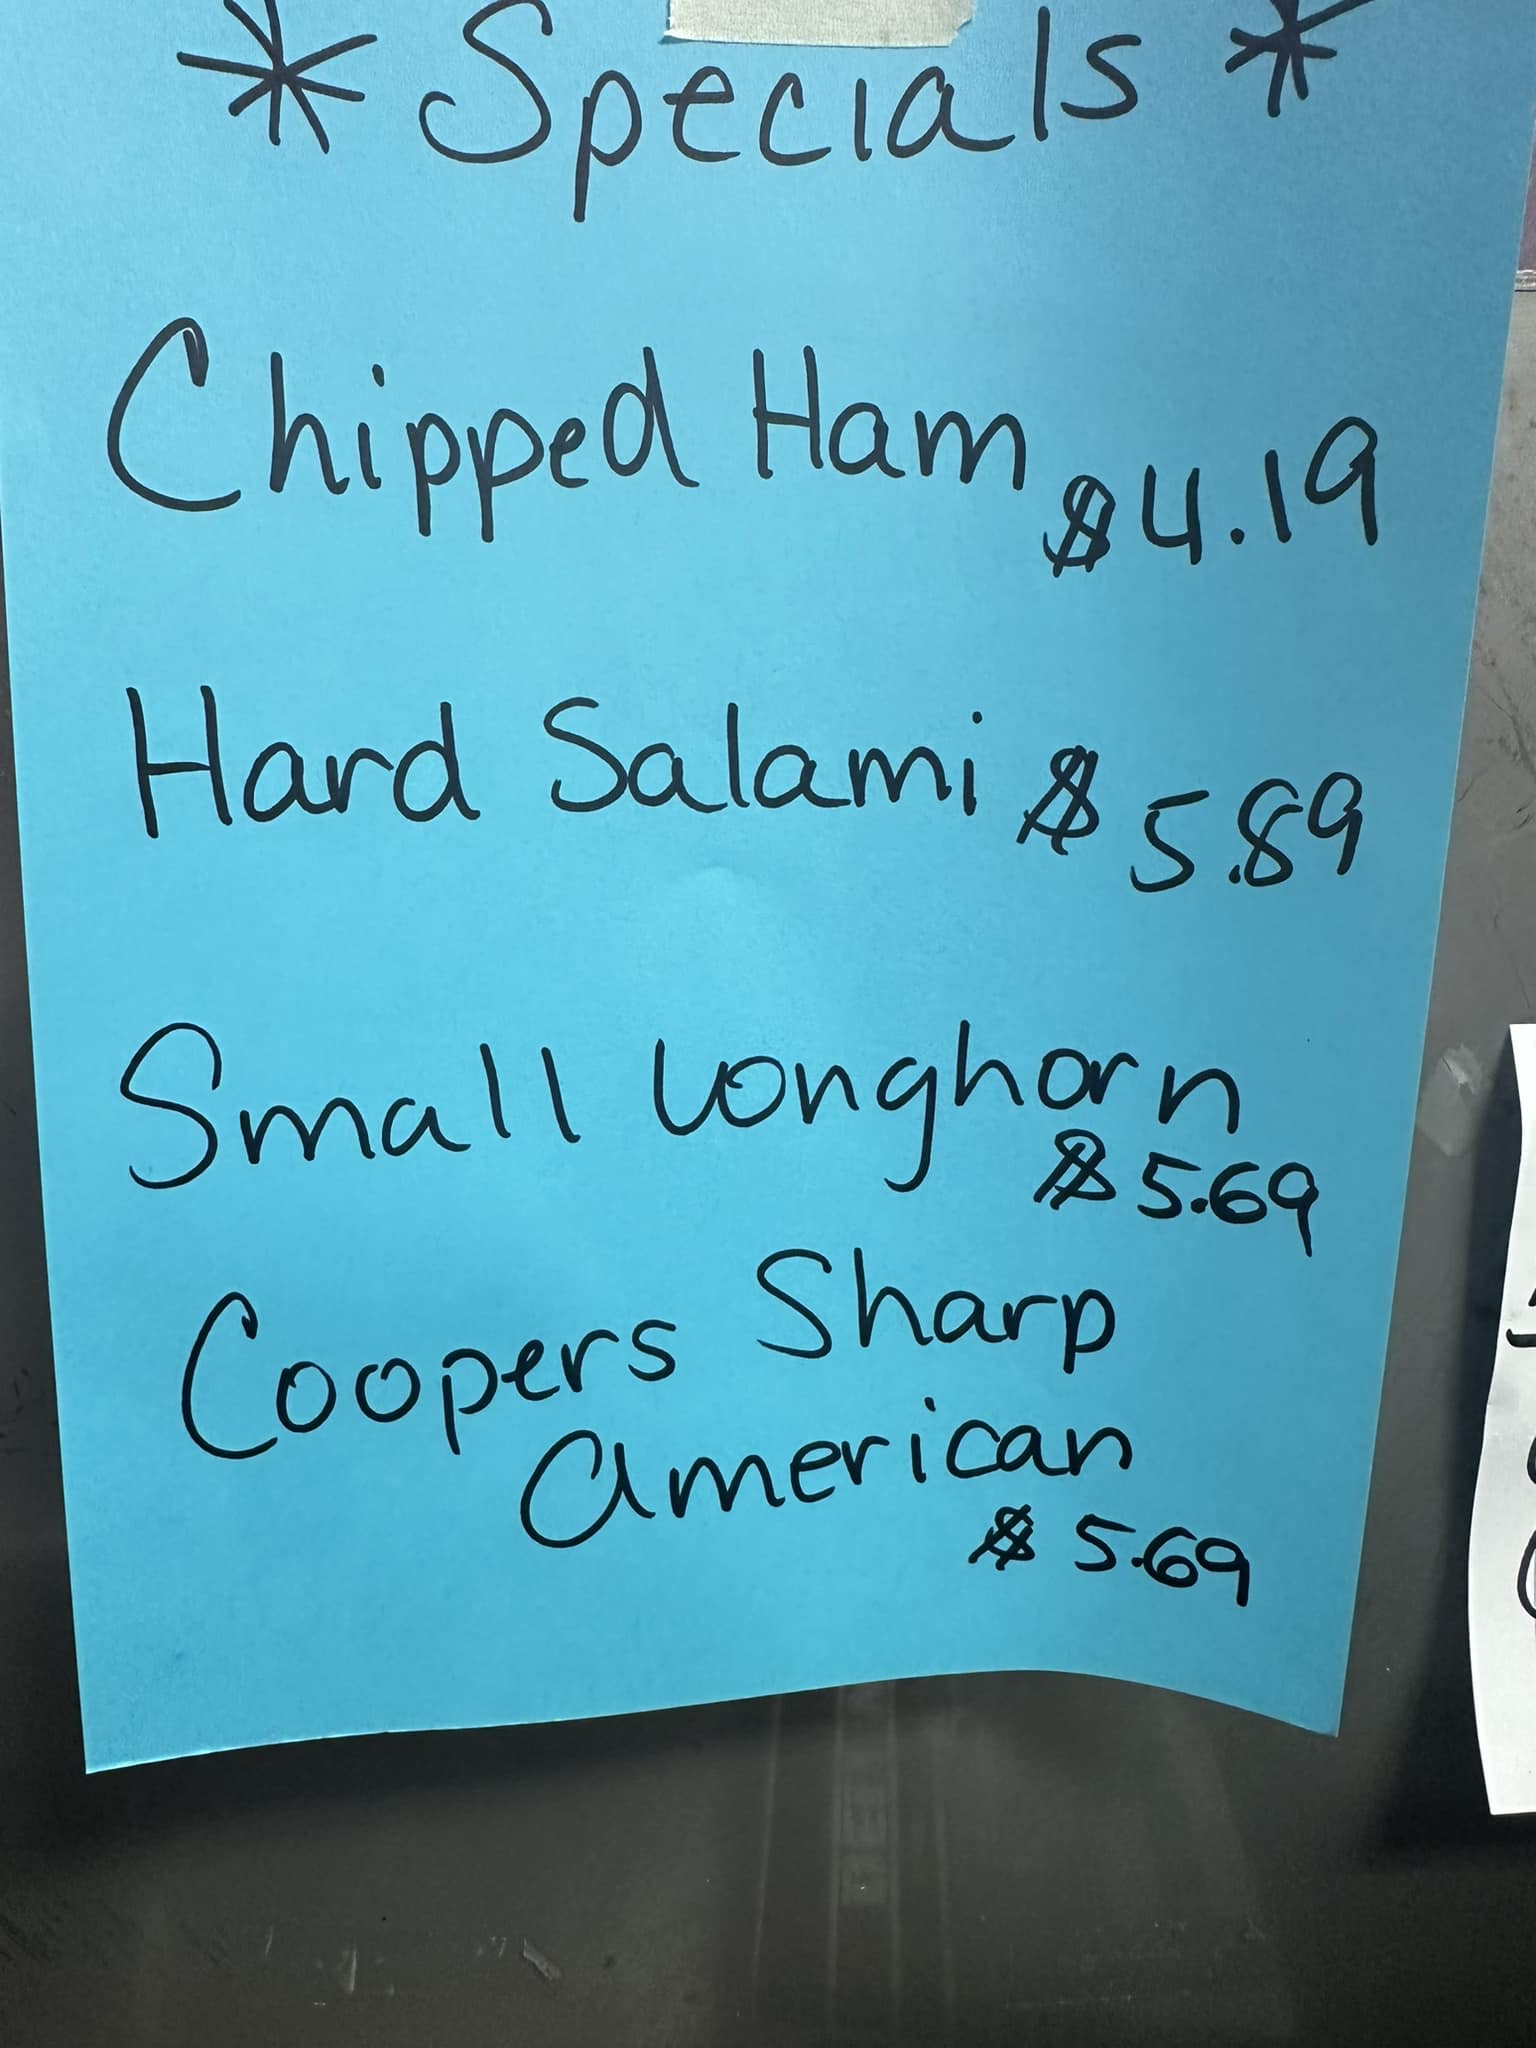 * Specials *
Chipped Ham $4.19
Hard Salami $5.89
Small Longhorn
$5.69
Coopers Sharp
American
$5.69